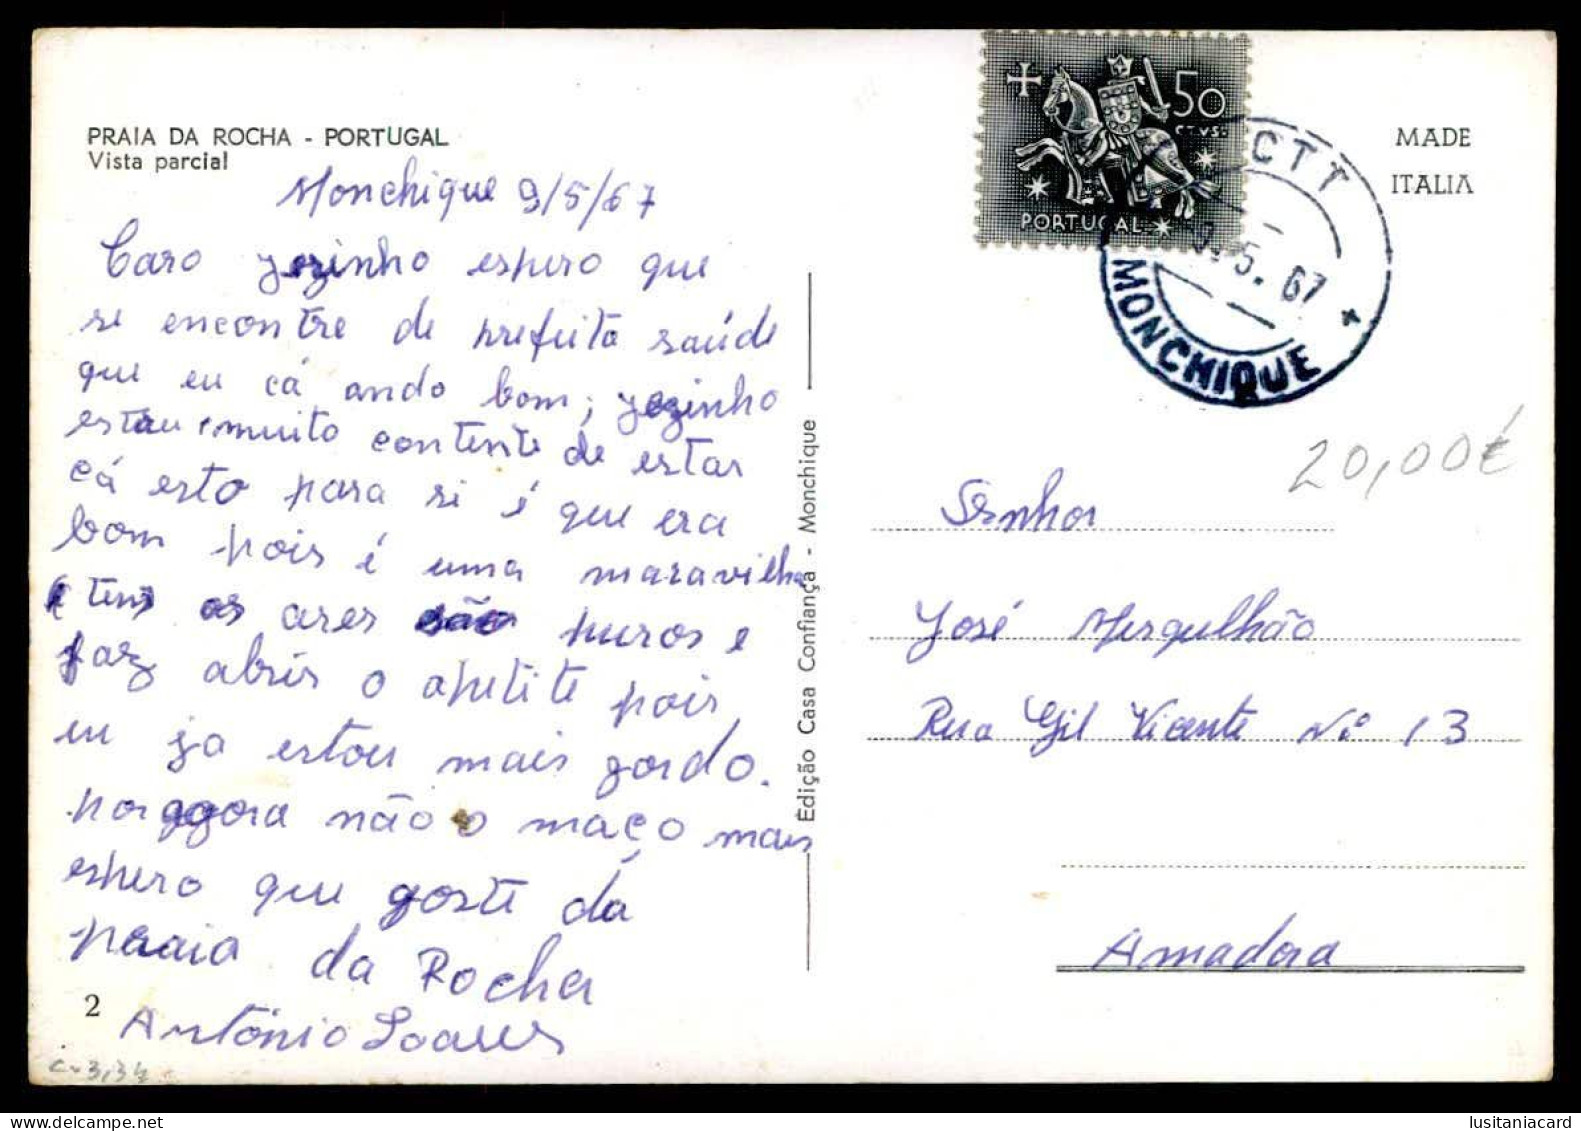 PRAIA DA ROCHA - PORTUGAL
Vista parcial
Monchique 9/5/67
Caro yozinho espero que
se encontre de prefeita saúde
que eu cá ando bom; yozinho
estau muito contente de estar
cá esto para si é que era
bom pois é uma maravilha
tem os ares são puros e
faz abrir o apetite pois
eu ja estou mais gordo.
por agora não o maço mais
espero que goste da
praia da Rocha
António Soares
2
C-3,34
Edição Casa Confiança - Monchique
50
CTVS.
PORTUGAL
CTT
5. 67
MONCHIQUE
MADE
ITALIA
20,00€
Senhor
José Mergulhão
Rua Gil Vicente Nº 13
Amadora
lusitaniacard.com